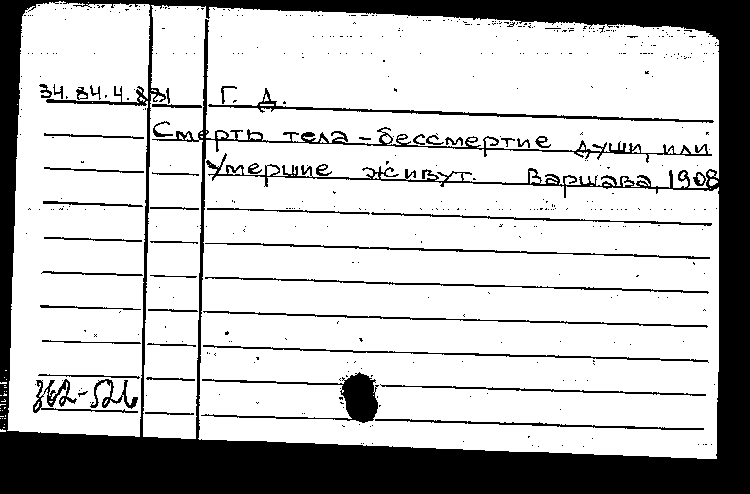 34.84.4.881 Г. Д.
Смерть тела - бессмертие души, или
Умершие живут. Варшава, 1908
362-526